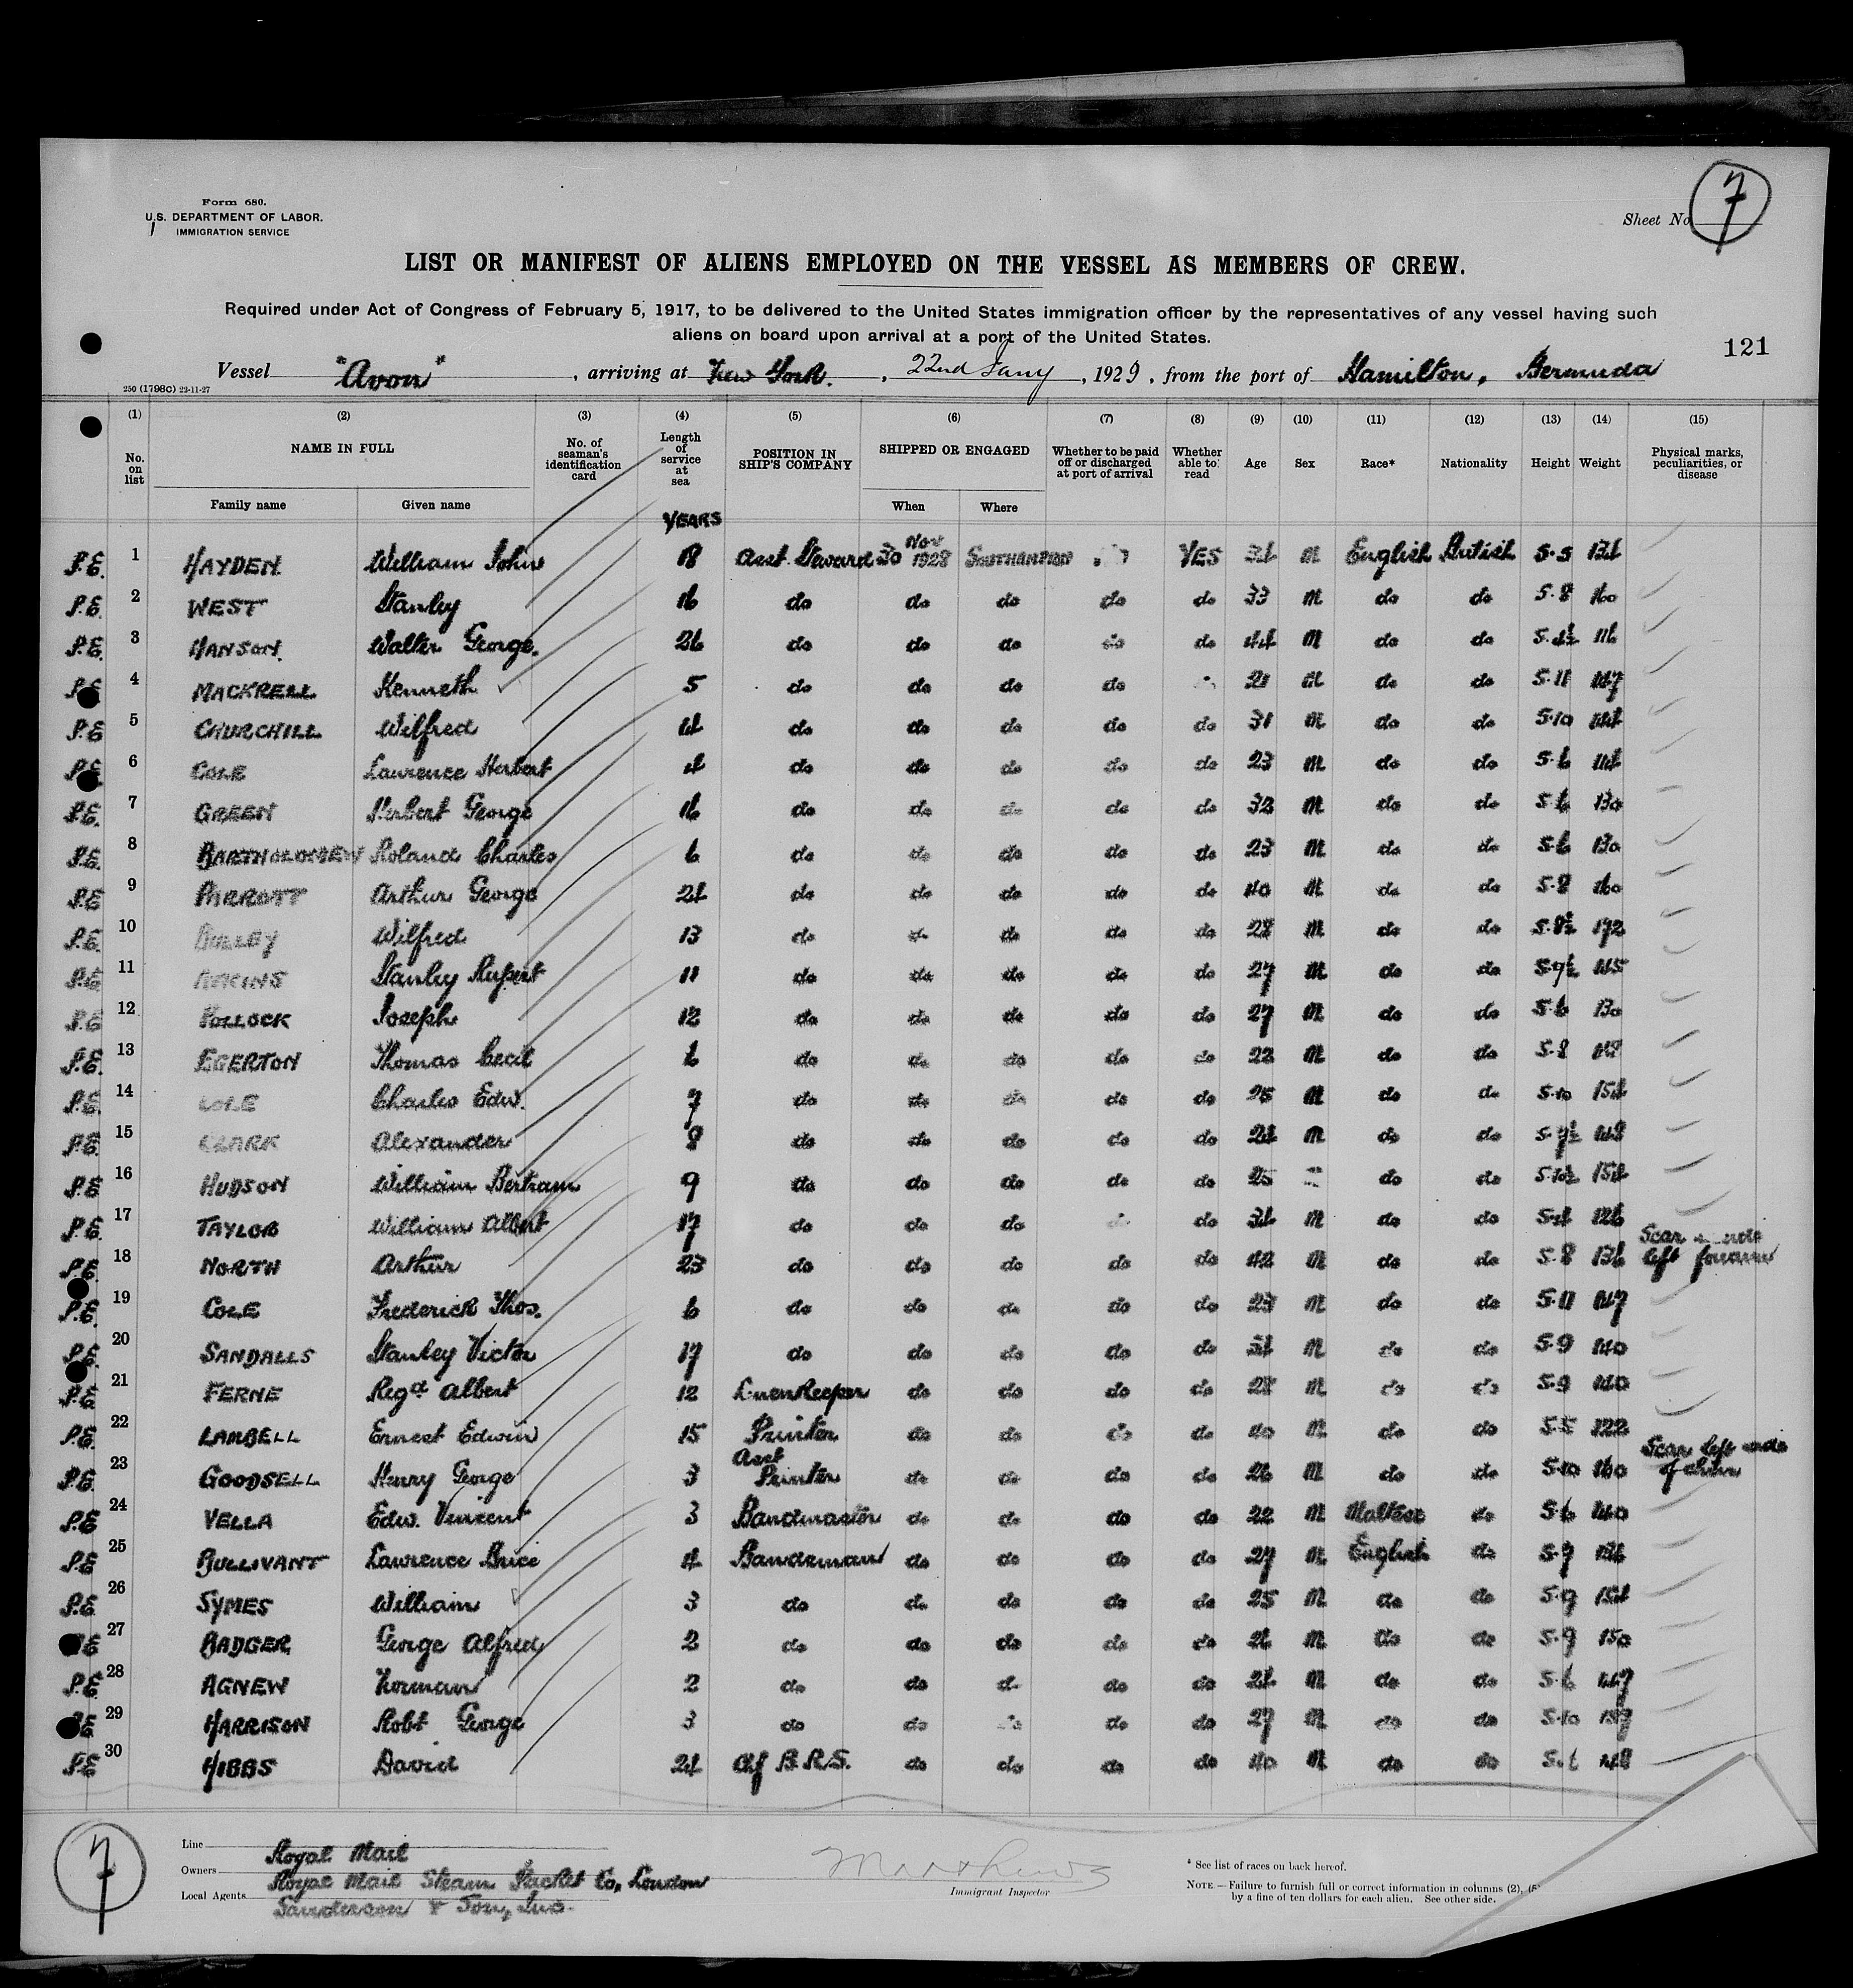 Form 680.
U.S. DEPARTMENT OF LABOR.
IMMIGRATION SERVICE
Sheet No. 7
LIST OR MANIFEST OF ALIENS EMPLOYED ON THE VESSEL AS MEMBERS OF CREW.
Required under Act of Congress of February 5, 1917, to be delivered to the United States immigration officer by the representatives of any vessel having such
aliens on board upon arrival at a port of the United States.
121
Vessel "Avon", arriving at New York., 22nd Jany, 1929, from the port of Hamilton, Bermuda
250 (1798C) 22-11-27
(1) (2) (3) (4) (5) (6) (7) (8) (9) (10) (11) (12) (13) (14) (15)
No. on list NAME IN FULL No. of seaman's identification card Length of service at sea POSITION IN SHIP'S COMPANY SHIPPED OR ENGAGED Whether to be paid off or discharged at port of arrival Whether able to read Age Sex Race* Nationality Height Weight Physical marks, peculiarities, or disease
Family name Given name When Where
YEARS
P.E. 1 HAYDEN William John 18 Asst. Steward 30 Nov 1928 Southampton YES 34 M English British 5.5 134
P.E. 2 WEST Stanley 16 do do do do do 33 M do do 5.8 160
P.E. 3 HANSON Walter George. 26 do do do do do 44 M do do 5.4½ 116
P.E. 4 MACKRELL Kenneth 5 do do do do 21 M do do 5.11 147
P.E 5 CHURCHILL Wilfred 14 do do do do do 31 M do do 5.10 144
P.E. 6 COLE Laurence Herbert 4 do do do do do 23 M do do 5.6 114
P.E. 7 GREEN Herbert George 16 do do do do do 32 M do do 5.6 130
P.E. 8 BARTHOLOMEW Roland Charles 6 do do do do do 23 M do do 5.6 130
P.E 9 PARROTT Arthur George 24 do do do do do 40 M do do 5.8 160
P.E. 10 Wilfred 13 do do do do do 28 M do do 5.8½ 172
P.E 11 Stanley Rupert 11 do do do do do 27 M do do 5.9½ 145
P.E 12 POLLOCK Joseph 12 do do do do do 27 M do do 5.6 130
P.E. 13 EGERTON Thomas Cecil 6 do do do do do 22 M do do 5.8 148
P.E. 14 COLE Charles Edw. 7 do do do do do 25 M do do 5.10 154
P.E. 15 CLARK Alexander 8 do do do do do 24 M do do 5.7½ 148
P.E 16 HUDSON William Bertram 9 do do do do do 25 do do 5.10½ 154
P.E. 17 TAYLOR William Albert 17 do do do do 34 M do do 5.4 126
P.E. 18 NORTH Arthur 23 do do do do do 42 M do do 5.8 136 Scar left forearm
P.E. 19 COLE Frederick Thos. 6 do do do do do 23 M do do 5.11 147
P.E. 20 SANDALLS Stanley Victor 17 do do do do do 34 M do do 5.9 140
P.E 21 FERNE Regd Albert 12 Linenkeeper do do do do 28 M do do 5.9 140
P.E. 22 LAMBELL Ernest Edwin 15 Printer do do do do 40 M do do 5.5 122
P.E. 23 GOODSELL Henry George 3 Asst Printer do do do do 26 M do do 5.10 160 Scar left side of chin
P.E 24 VELLA Edw. Vincent 3 Bandmaster do do do do 22 M Maltese do 5.6 140
P.E 25 BULLIVANT Lawrence Brice 4 Bandsman do do do do 27 M English do 5.9 136
P.E 26 SYMES William 3 do do do do do 25 M do do 5.9 154
P.E 27 BADGER George Alfred 2 do do do do do 26 M do do 5.9 150
P.E. 28 AGNEW Norman 2 do do do do do 24 M do do 5.6 147
P.E 29 HARRISON Robt George 3 do do do do 27 M do do 5.10 157
P.E 30 HIBBS David 24 Of B.R.S. do do do do 40 M do do 5.6 148
7
Line Royal Mail
Owners Royal Mail Steam Packet Co, London
Local Agents Sanderson & Son, Inc.
Matthews
Immigrant Inspector
* See list of races on back hereof.
NOTE.—Failure to furnish full or correct information in columns (2), (5
by a fine of ten dollars for each alien. See other side.